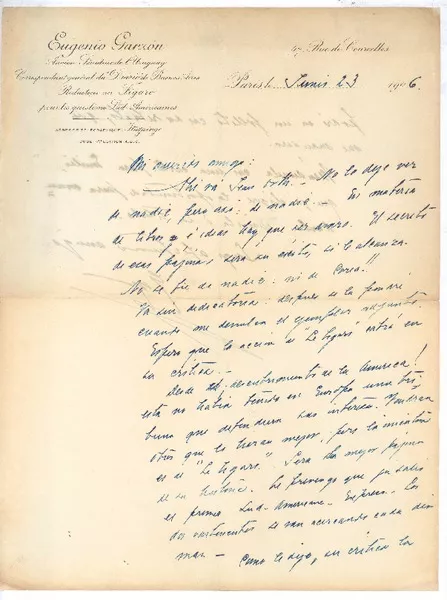 Eugenio Garzón
Ancien Sénateur de l'Uruguay
Correspondant général du "Diario" de Buenos-Aires
Rédacteur au Figaro
pour les questions Sud-Américaines
47 Rue de Courcelles
Paris le Junio 23 1906.
Mi querido amigo:
Ahí va Jean Orth. No lo deje ver
de nadie, pero así: de nadie. En materia
de libros e ideas hay que ser avaro. El secreto
de esas páginas será su éxito, si lo alcanza.
No se fie de nadie: ni de Corea!!
Va sin dedicatoria: después se la pondré
cuando me devuelva el ejemplar adjunto.
Espero que la acción de Le Figaro entre en
su crítica.
Desde el descubrimiento de la America!
esta no había tenido en Europa una tri-
buna que defendiera sus intereses. Vendrán
otros que lo hagan mejor, pero la iniciativa
es de "Le Figaro". Será la mejor página
de su historia.
el primer Sud-Americano. Los
dos continentes se van acercando cada día
mas. Como le digo, su crítica la